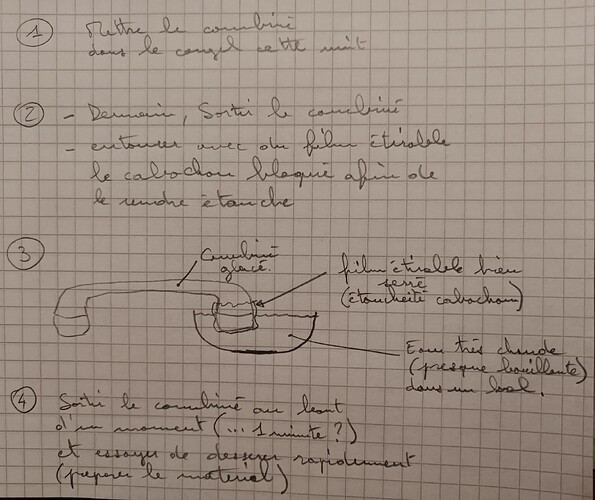 1 Mettre le combiné
dans le congel cette nuit
2 - Demain, Sortir le combiné
- entourer avec du film étirable
le cabochon bloqué afin de
le rendre étanche
3
Combiné
glacé.
film étirable bien
serré
(étanchéité cabochon)
Eau très chaude
(presque bouillante)
dans un bol.
4 Sortir le combiné au bout
d'un moment (... 1 minute ?)
et essayer de desserrer rapidement
(préparer le matériel)